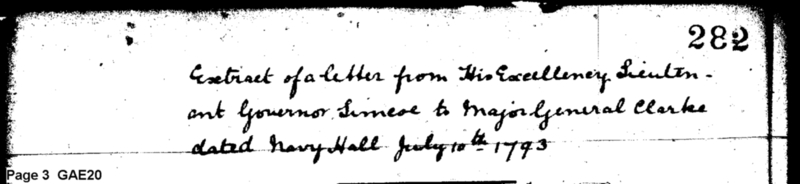 282
Extract of a letter from His Excellency Lieuten-
ant Governor Simcoe to Major General Clarke
dated Navy Hall July 10th 1793
Page 3 GAE20